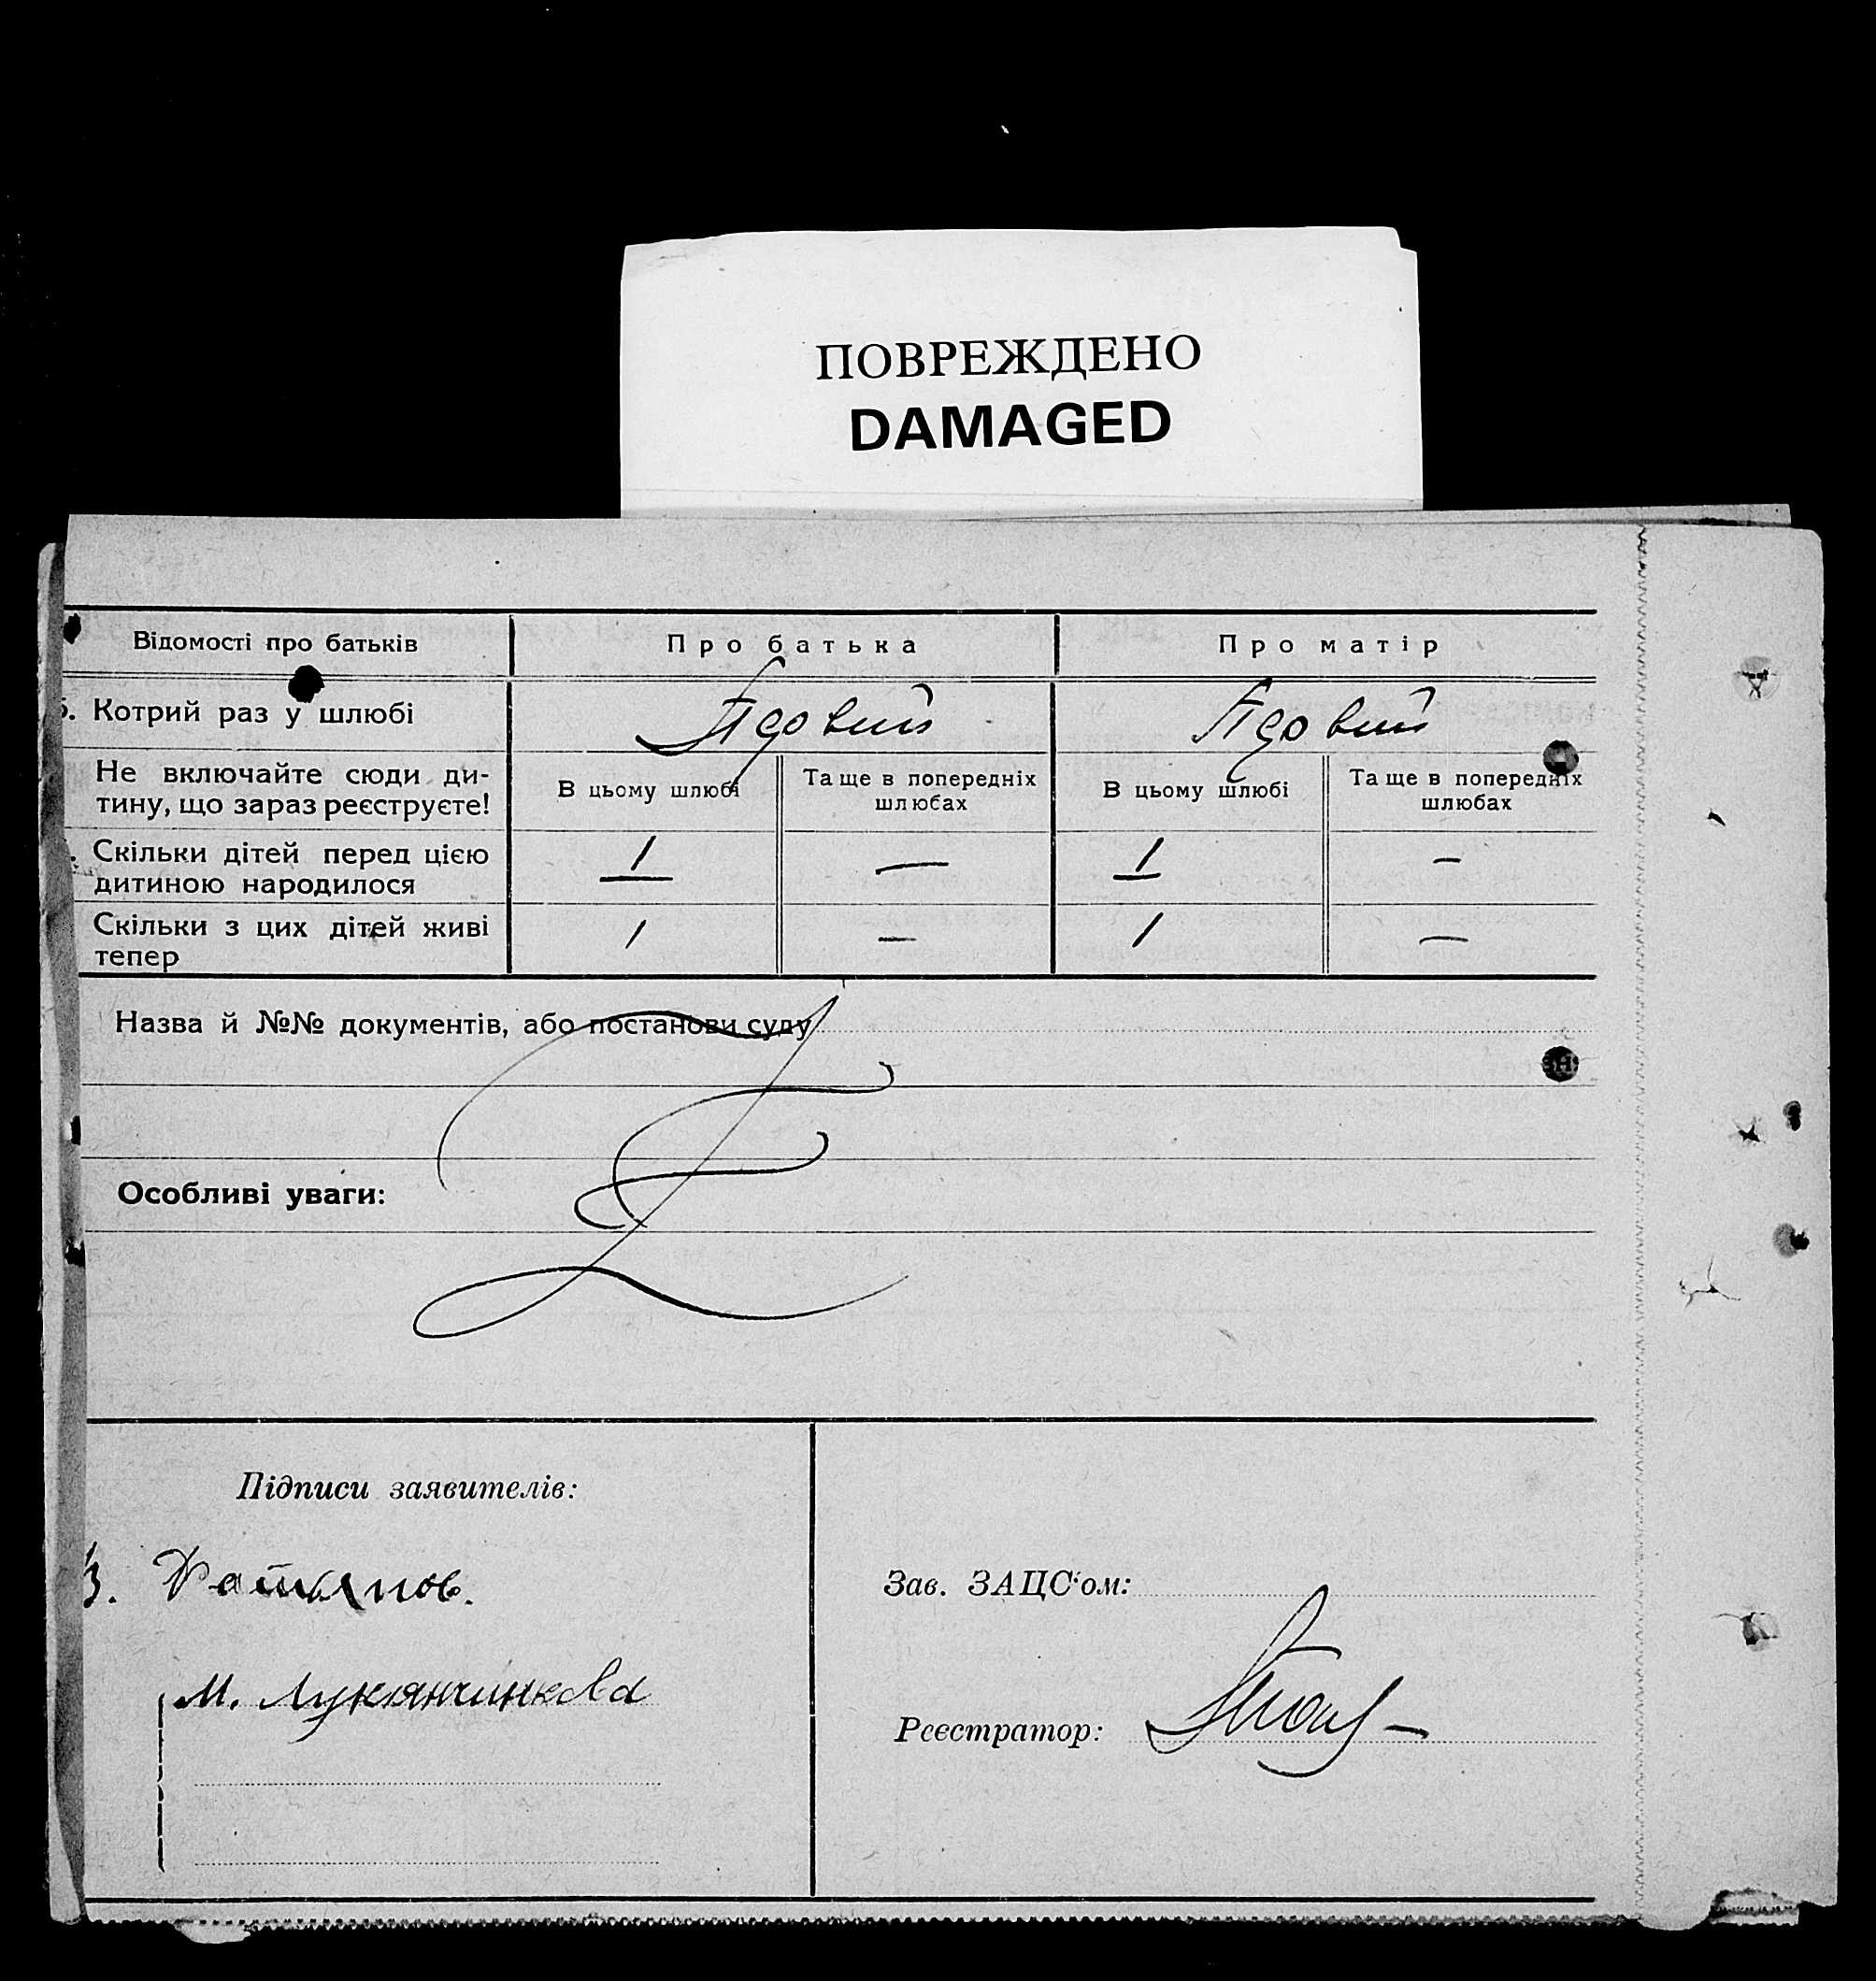 ПОВРЕЖДЕНО
DAMAGED
Відомості про батьків
Про батька
Про матір
Котрий раз у шлюбі
Не включайте сюди ди-
тину, що зараз реєструєте!
В цьому шлюбі
Та ще в попередніх
шлюбах
В цьому шлюбі
Та ще в попередніх
шлюбах
Скільки дітей перед цією
дитиною народилося
1
—
1
—
Скільки з цих дітей живі
тепер
1
—
1
—
Назва й №№ документів, або постанови суду
Особливі уваги:
Підписи заявителів:
М. Лукянчинкова
Зав. ЗАЦС'ом:
Реєстратор: